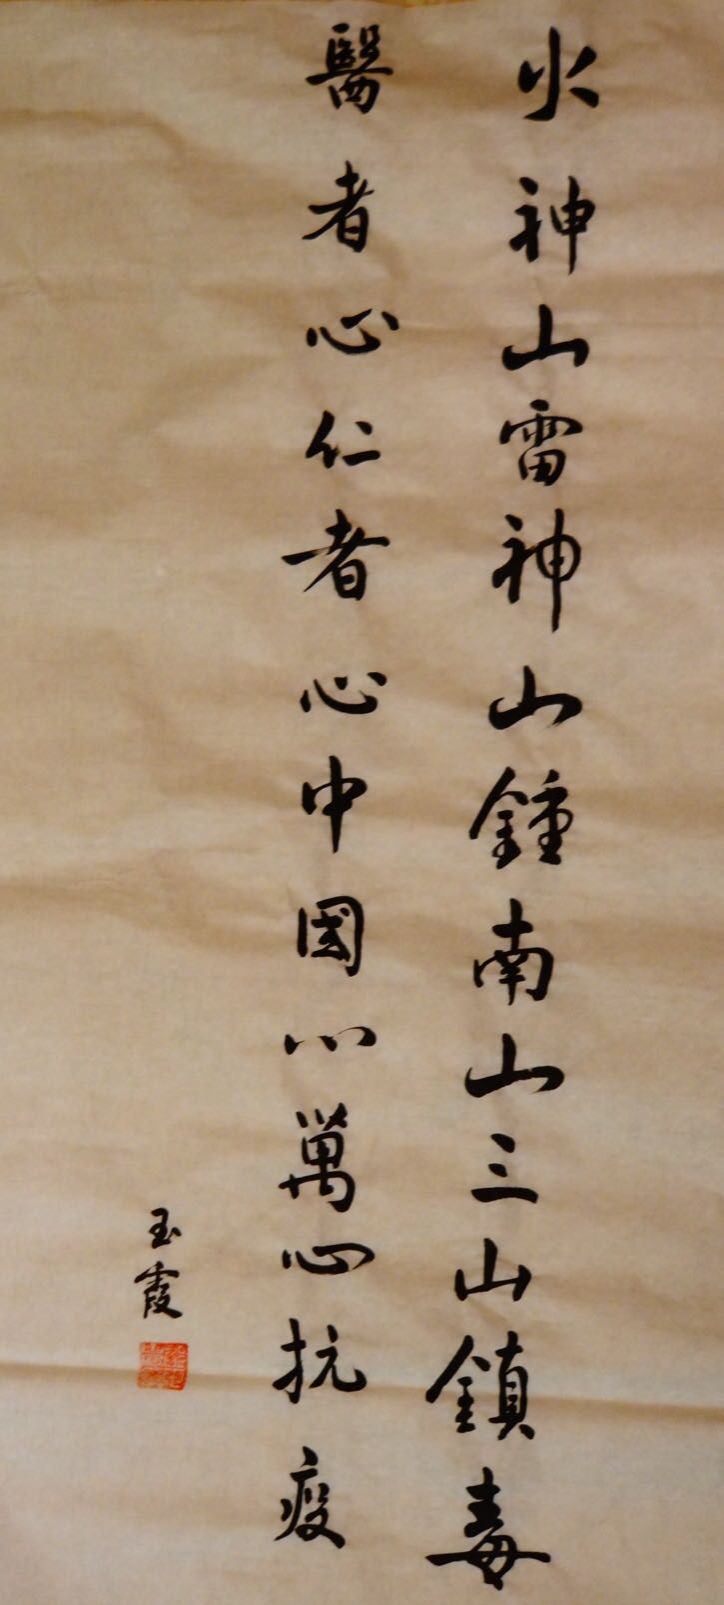 火神山雷神山鍾南山三山鎮毒
醫者心仁者心中國心萬心抗疫
玉霞